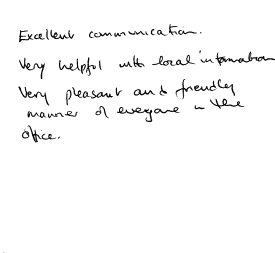 Excellent communication.
Very helpful with local information
Very pleasant and friendly
manner of everyone in the
office.